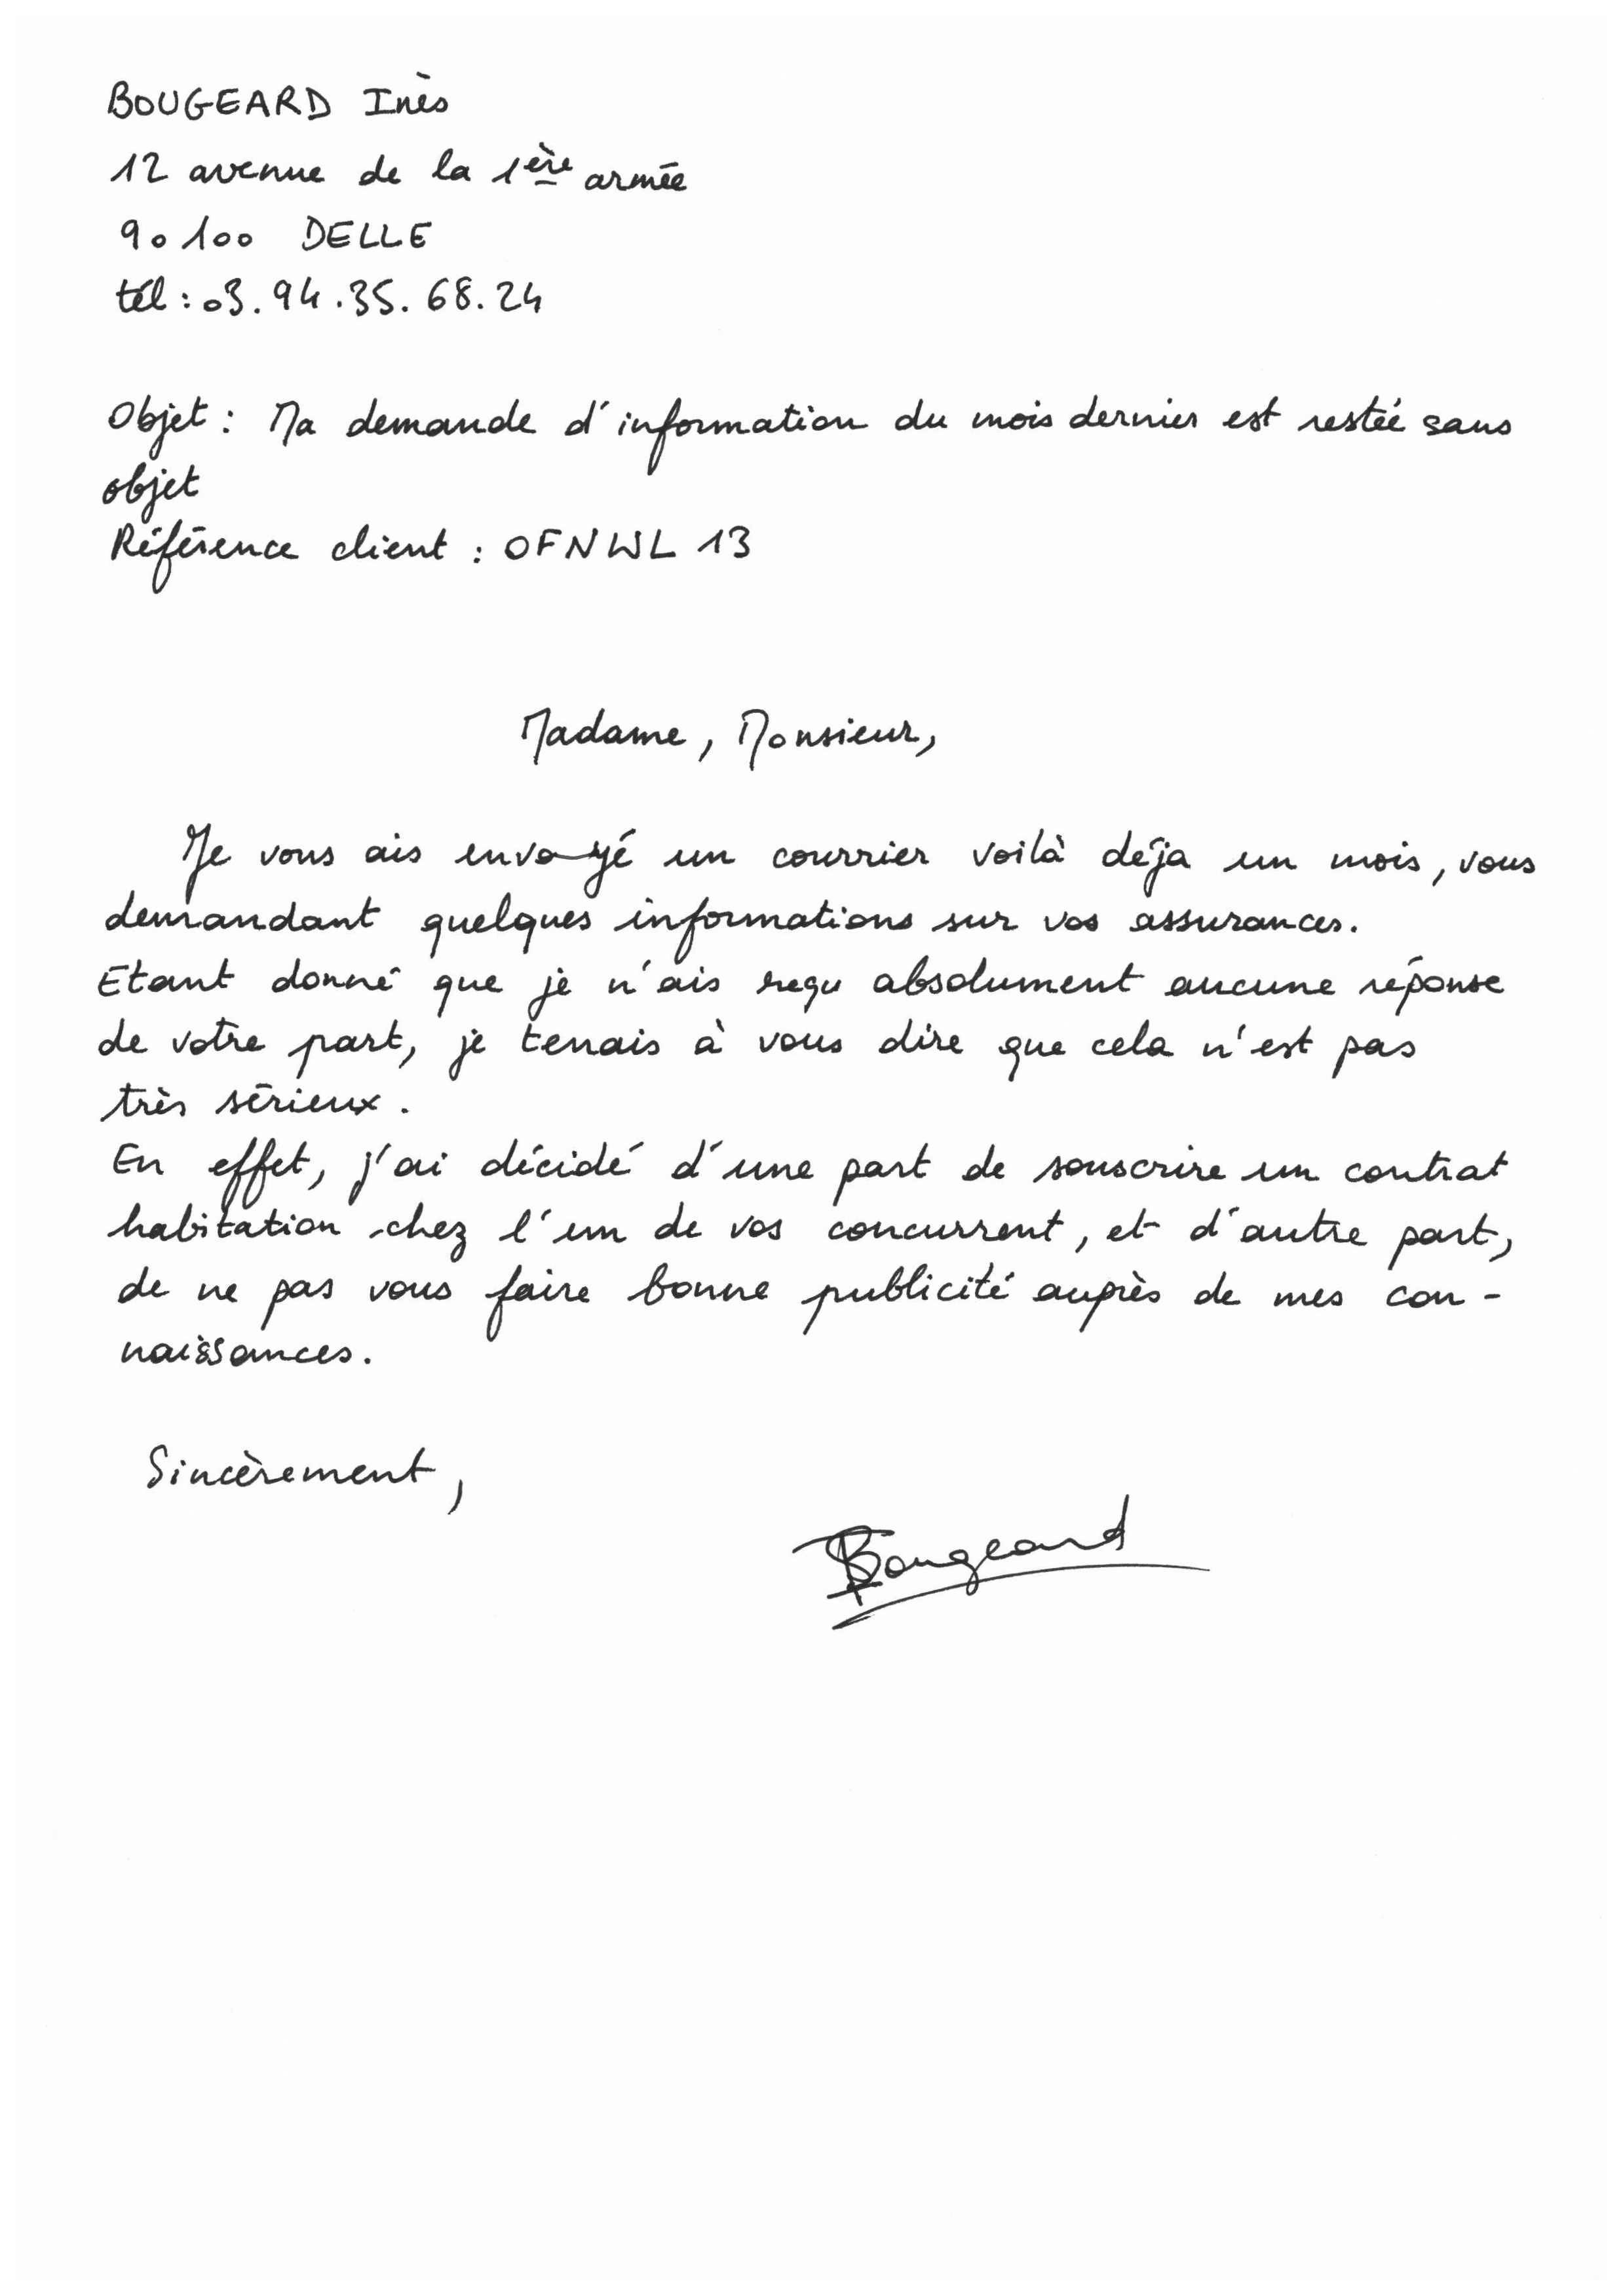 BOUGEARD Inès
12 avenue de la 1ère armée
90100 DELLE
tél : 03.94.35.68.24
Objet : Ma demande d'information du mois dernier est restée sans
objet
Référence client : OFNWL 13
Madame, Monsieur,
Je vous ais envoyé un courrier voilà déja un mois, vous
demandant quelques informations sur vos assurances.
Etant donné que je n'ais reçu absolument aucune réponse
de votre part, je tenais à vous dire que cela n'est pas
très sérieux.
En effet, j'ai décidé d'une part de souscrire un contrat
habitation chez l'un de vos concurrent, et d'autre part,
de ne pas vous faire bonne publicité auprès de mes con-
naissances.
Sincèrement,
Bougeard